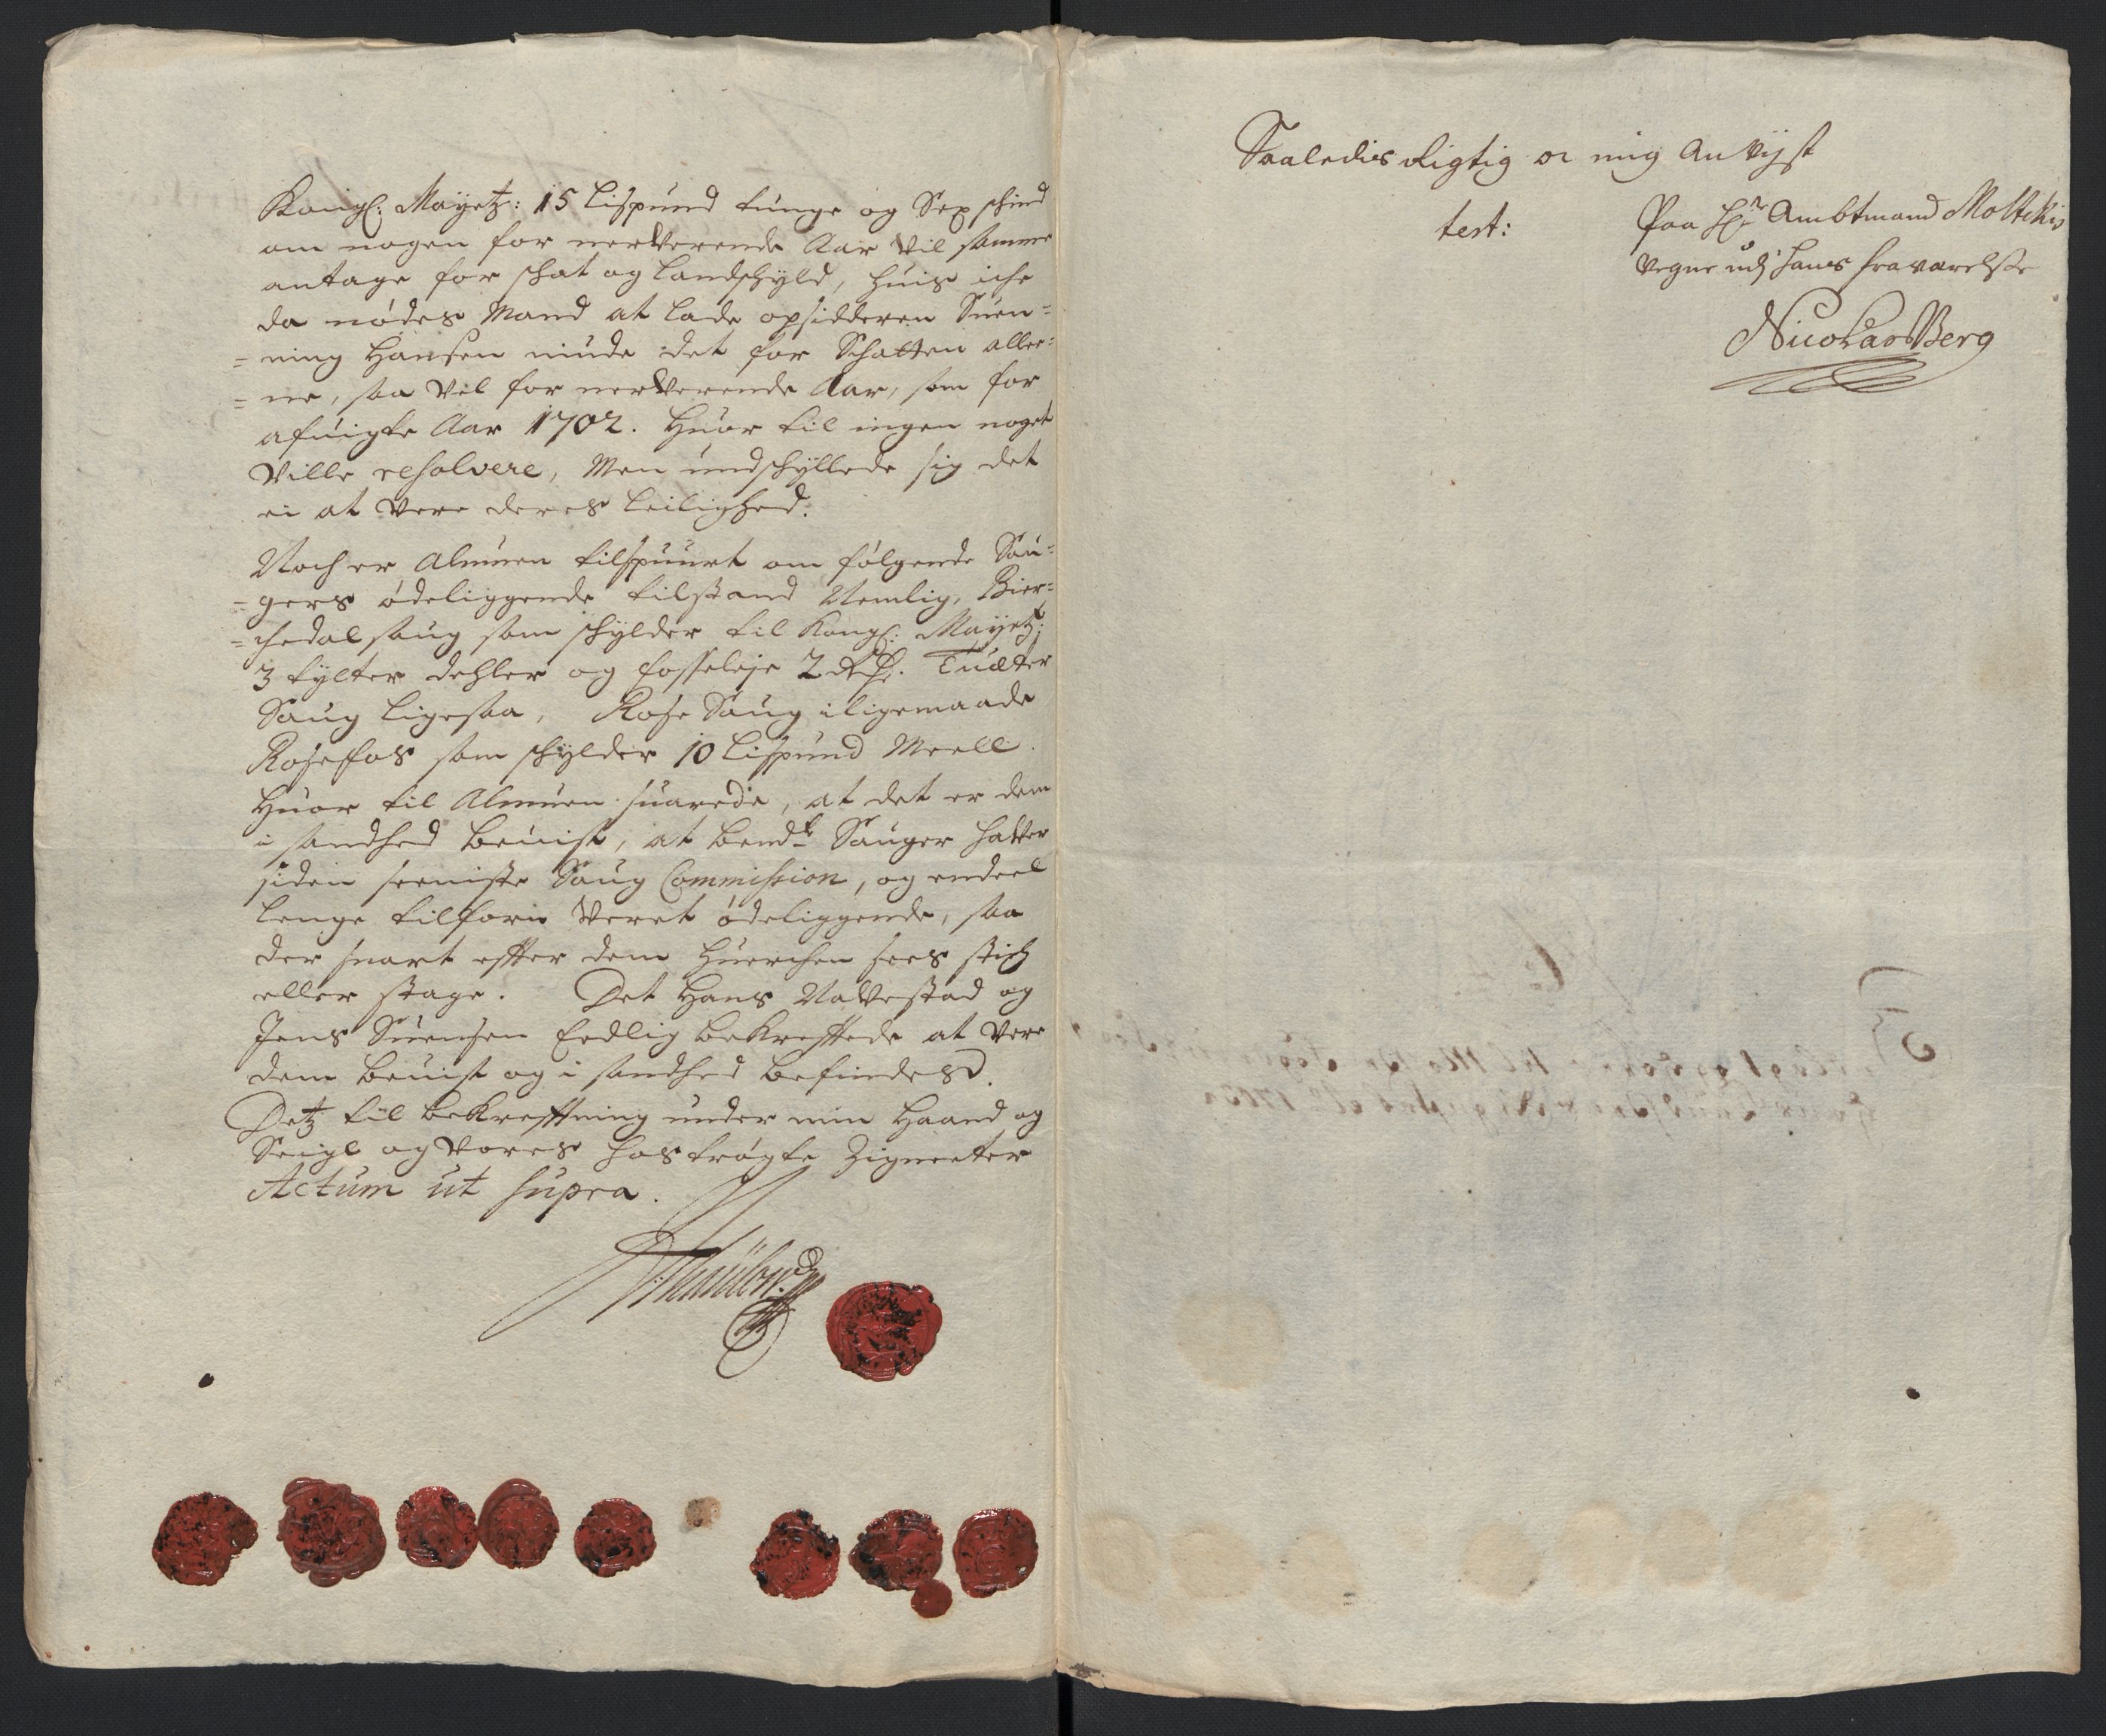 Kongl: Mayetz: 15 Lispund tunge og Sex schind
om nogen for nerverende Aar vil samme
antage for schat og Landschyld, huis iche
da nødes Mand at lade opsidderen Suen=
=ning Hansen niude det for Schatten aller=
=ne, saa vel for nerverende Aar, som for
afuigte Aar 1702. Huor til ingen noget
Ville resolvere, Men undschyllede sig det
ei at vere deres leilighed.
Noch er Almuen tilspuurt om følgende Sau=
=gers ødeliggende tilstand Nemlig, Bier=
=chedal saug som schylder til Kongl: Mayetz:
3 tylter dehler og fosseleje 2 Rd. Tuæter
Saug ligesaa, Rose Saug iligemaade
Rosefos som schylder 10 Lispund Meell.
Huor til Almuen suarede, at det er dem
i sandhed beuist, at bemdte Sauger hafver
siden seeniste Saug Commission, og endeel
lenge tilforn veret ødeliggende, saa
der snart efter dem huerchen sees stich
eller stage. Det Hans Navestad og
Jens Suensen Eedlig bekreftede at vere
dem beuist og i sandhed befindes.
Detz til bekreftning under min Haand og
Seigl og vores hostrøgte Zigneeter
Actum ut supra.
Saaledis Rigtig er mig Anvijst
test: Paa Hr Ambtmand Moltkis
Vegne udj hans fraværelse
Nicolas Berg